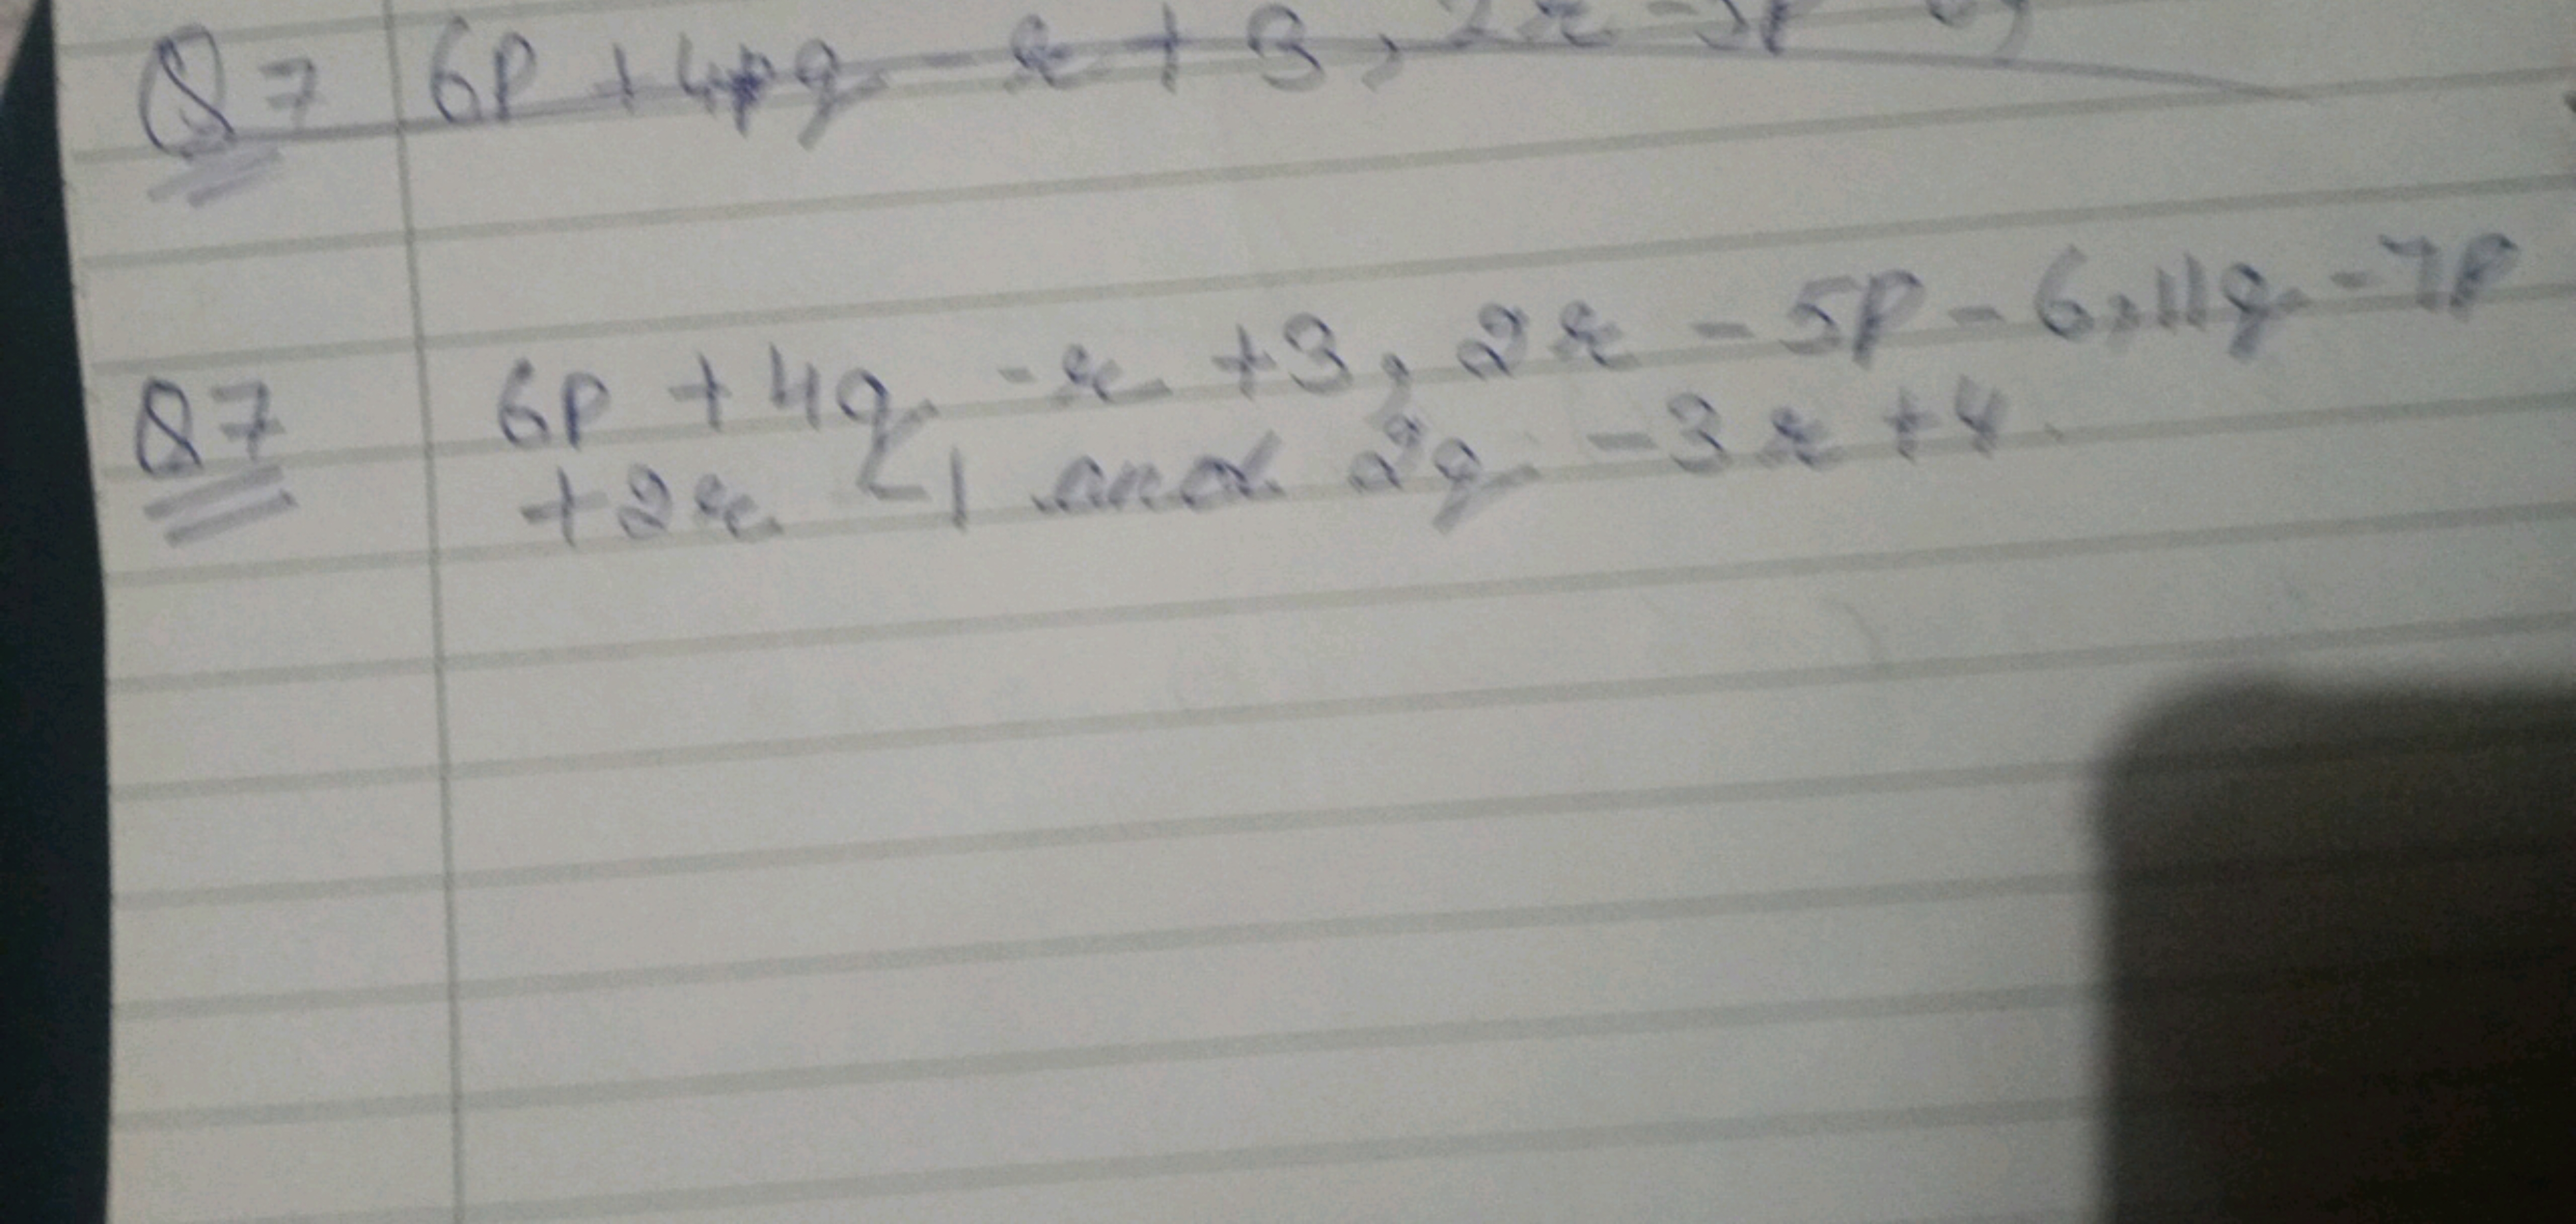 Q7 6p + 4q - r + 3, 2r - 5p
Q7 6p + 4q - r + 3, 2r - 5p - 6, 11q - 7p
+2r - 1 and 2q - 3r + 4.